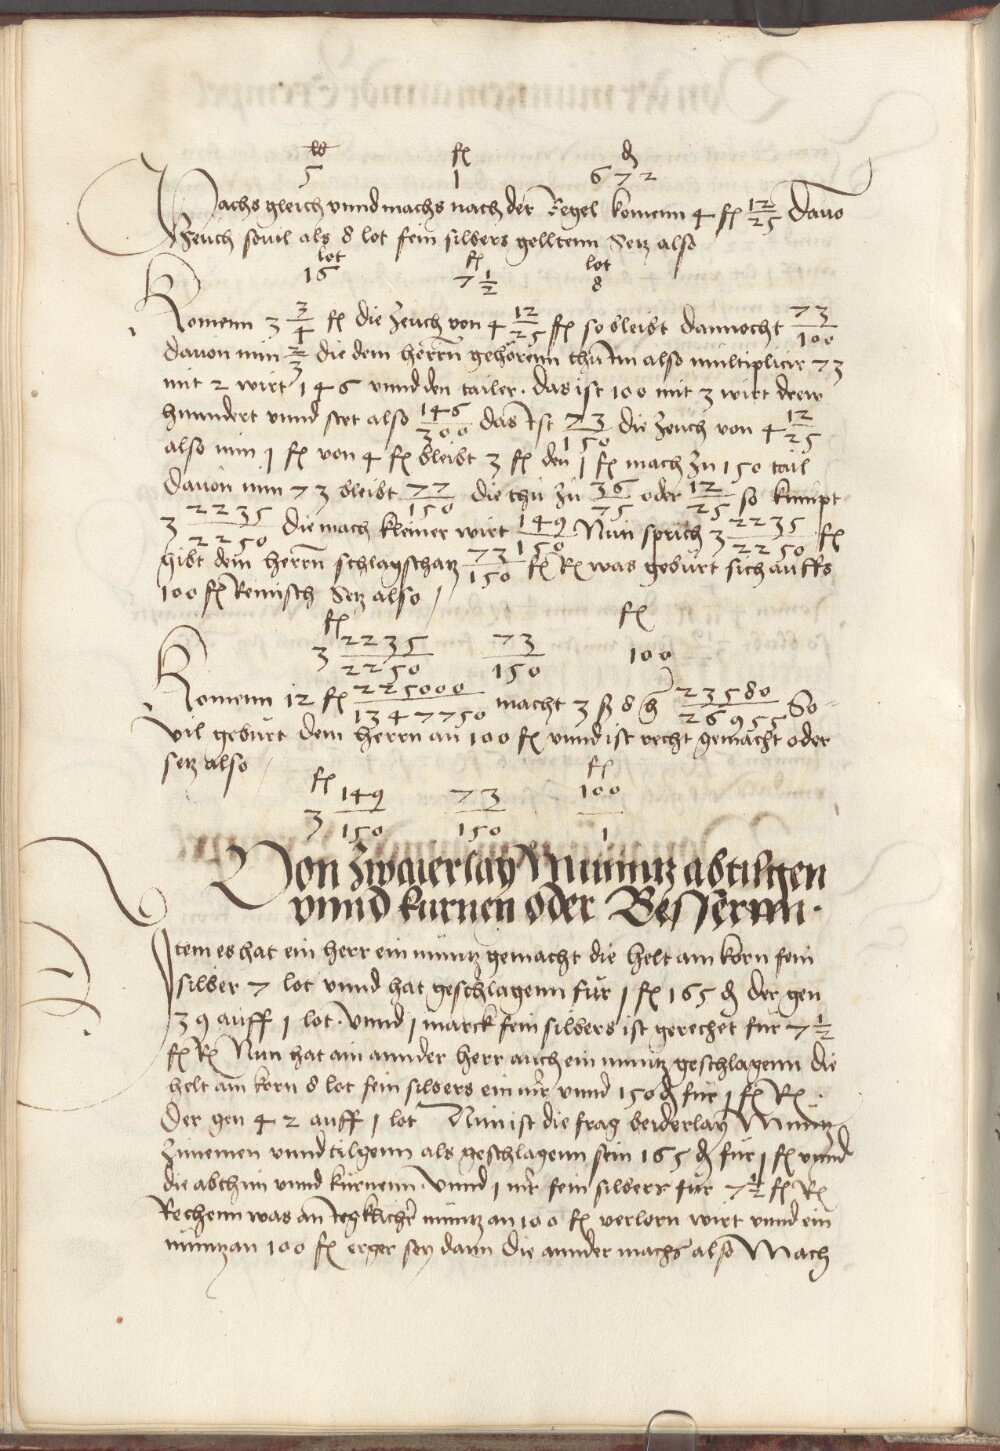 ß fl ₰
5 1 672
Machs gleich vnnd machs nach der Regel komenn 4 fl 12/25 Dauo
Zeuch souil als 8 lot fein silbers gelltenn Setz also
lot fl lot
16 7 1/2 8
Komenn 3 3/4 fl die Zeuch von 4 12/25 fl so bleibt dannocht 73/100
dauon nim 2/3 die dem herrnn gehörenn thu Im also multiplicir 73
mit 2 wirt 146 vnnd den tailer. das ist 100 mit 3 wirt drew
hunndert vnnd stet also 146/300 das Ist 73/150 die Zeuch von 4 12/25
also nim 1 fl von 4 fl bleibt 3 fl den 1 fl mach Zu 150 tail
dauon nim 73 bleibt 77/150 die thu Zu 36/75 oder 12/25 so kumpt
3 2235/2250 die mach kleiner wirt 149/150 Nun sprich 3 2235/2250 fl
gibt dem herrnn schlagschatz 73/150 fl R was gebürt sich auffs
100 fl Reinisch Setz also
fl fl
3 2235/2250 73/150 100
Komenn 12 fl 225000/1347750 macht 3 ß 8 h 23580/26955 So
vil gebürt dem herrn an 100 fl vnnd ist recht gemacht oder
setz also
fl fl
3 149/150 73/150 100/1
Von Zwaierlay Münntz abtilgen
vnnd kürnen oder Bessernn.
Item es hat ein herr ein müntz gemacht die helt am korn fein
silber 7 lot vnnd hat geschlagenn für 1 fl 165 ₰ der gen
39 auff 1 lot. Vnnd 1 marck fein silbers ist gerechet für 7 1/2
fl R Nun hat ain annder herr auch ein müntz geschlagenn die
helt am korn 8 lot fein silbers ein mr vnnd 150 ₰ für 1 fl R.
Der gen 42 auff 1 lot Nun ist die frag beiderlay Müntz
Zunemen vnnd tilgenn als geschlagenn sein 165 ₰ für 1 fl vnnd
die abthun vnnd kürnenn. Vnnd 1 mr fein silbers für 7 1/2 fl R
Rechenn was an Itzlicher müntz an 100 fl verlorn wirt vnnd ein
müntz an 100 fl erger sey dann die annder machs also Mach